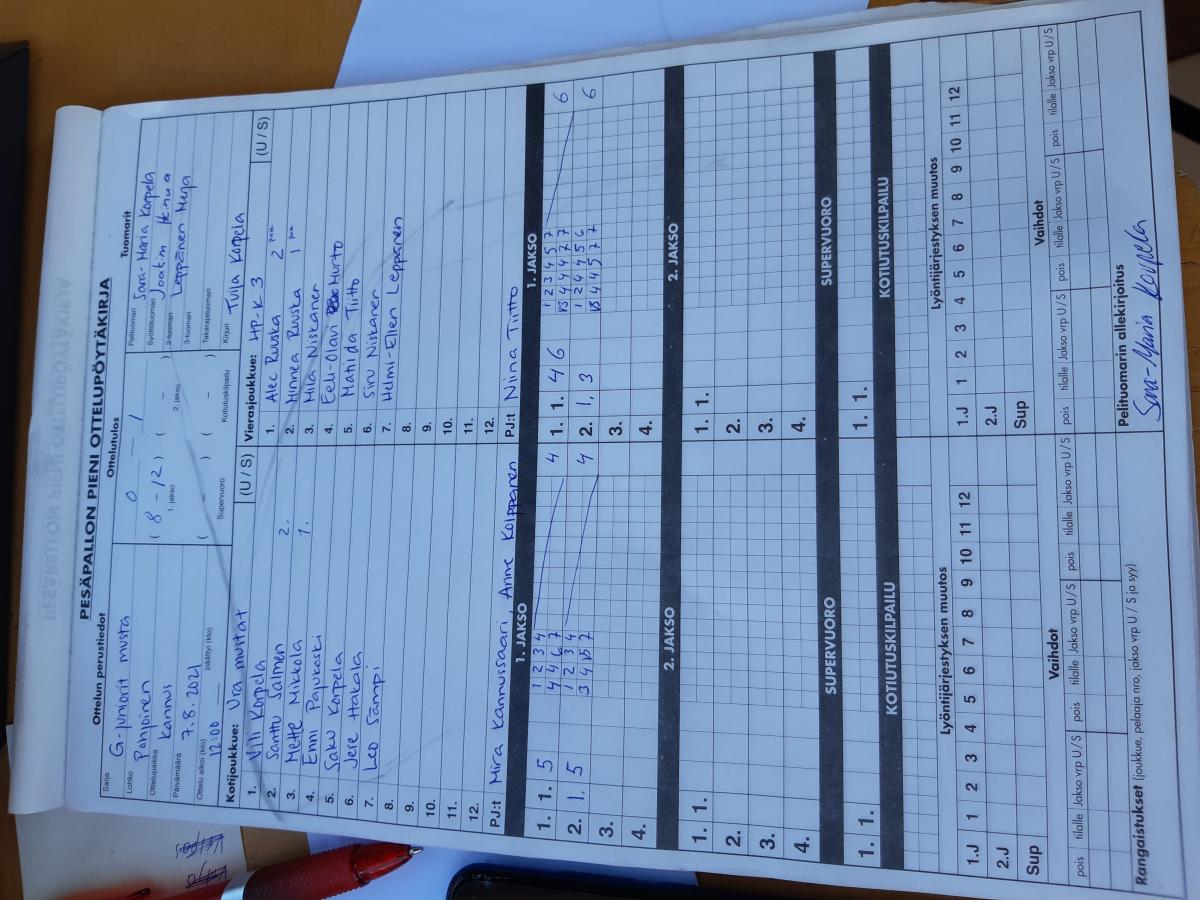 PESÄPALLON PIENI OTTELUPÖYTÄKIRJA
Ottelun perustiedot
Sarja G-juniorit musta
Lohko Pohjoinen
Ottelupaikka Kannus
Päivämäärä 7.8.2021
Ottelu alkoi (klo) päättyi (klo)
12:00
Ottelutulos
0 – 1
( 8 – 12 ) ( – )
1. jakso 2. jakso
( – ) ( – )
Supervuoro Kotiutuskilpailu
Tuomarit
Pelituomari Sara-Maria Korpela
Syöttötuomari Joakim
2-tuomari Leppänen Merja
3-tuomari
Takarajatuomari
Kirjuri Tuija Korpela
Kotijoukkue: Ura mutta+ (U / S)
1. Vili Korpela
2. Santtu Salmen 2.
3. Mette Mikkola 1.
4. Enni Pajukoski
5. Saku Korpela
6. Jere Hakala
7. Leo Sämpi
8.
9.
10.
11.
12.
PJ:t Mira Kannussaari, Anne Kolppanen
Vierasjoukkue: HP-K 3 (U / S)
1. Alec Ruuska 2
2. Minnea Ruuska 1
3. Mila Niskanen
4. Eeli-Olavi Hurto
5. Matilda Tiitto
6. Siru Niskanen
7. Helmi-Ellen Leppänen
8.
9.
10.
11.
12.
PJ:t Niina Tiitto
1. JAKSO
1. 1. 5 1 2 3 4 4
4 4 6 7
2. 1. 5 1 2 3 4 4
3 4 15 7
3.
4.
1. JAKSO
1. 1. 4 6 1 2 3 4 5 7 6
15 4 4 4 7 7
2. 1, 3 1 2 4 4 5 6 6
15 4 4 5 7 7
3.
4.
2. JAKSO
1. 1.
2.
3.
4.
2. JAKSO
1. 1.
2.
3.
4.
SUPERVUORO
1. 1.
SUPERVUORO
1. 1.
KOTIUTUSKILPAILU
KOTIUTUSKILPAILU
Lyöntijärjestyksen muutos
1.J 1 2 3 4 5 6 7 8 9 10 11 12
2.J
Sup
Lyöntijärjestyksen muutos
1.J 1 2 3 4 5 6 7 8 9 10 11 12
2.J
Sup
Vaihdot
pois tilalle Jakso vrp U / S pois tilalle Jakso vrp U / S pois tilalle Jakso vrp U / S
Vaihdot
pois tilalle Jakso vrp U / S pois tilalle Jakso vrp U / S pois tilalle Jakso vrp U / S
Rangaistukset (joukkue, pelaaja nro, jakso vrp U / S ja syy)
Pelituomarin allekirjoitus
Sara-Maria Korpela